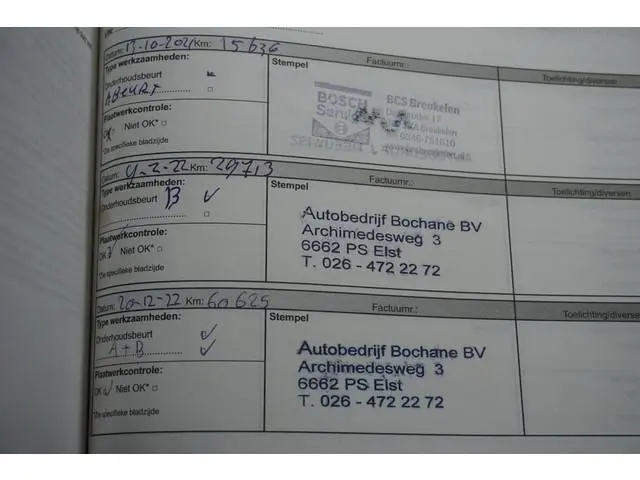 Datum: 13-10-2021 Km: 15636
Factuurnr.:
Type werkzaamheden:
Stempel
Toelichting/diversen
Onderhoudsbeurt
A BEURT
BOSCH
Service
BCS Breukelen
17
Breukelen
Plaatwerkcontrole:
OK Niet OK*
*Zie specifieke bladzijde
Datum: 9-2-22 Km:
Factuurnr.:
Type werkzaamheden:
Stempel
Toelichting/diversen
Onderhoudsbeurt B
Autobedrijf Bochane BV
Archimedesweg 3
6662 PS Elst
T. 026 - 472 22 72
Plaatwerkcontrole:
OK Niet OK*
*Zie specifieke bladzijde
Datum: 20-12-22 Km: 60625
Factuurnr.:
Type werkzaamheden:
Stempel
Toelichting/diversen
Onderhoudsbeurt
A+B
Autobedrijf Bochane BV
Archimedesweg 3
6662 PS Elst
T. 026 - 472 22 72
Plaatwerkcontrole:
OK Niet OK*
*Zie specifieke bladzijde